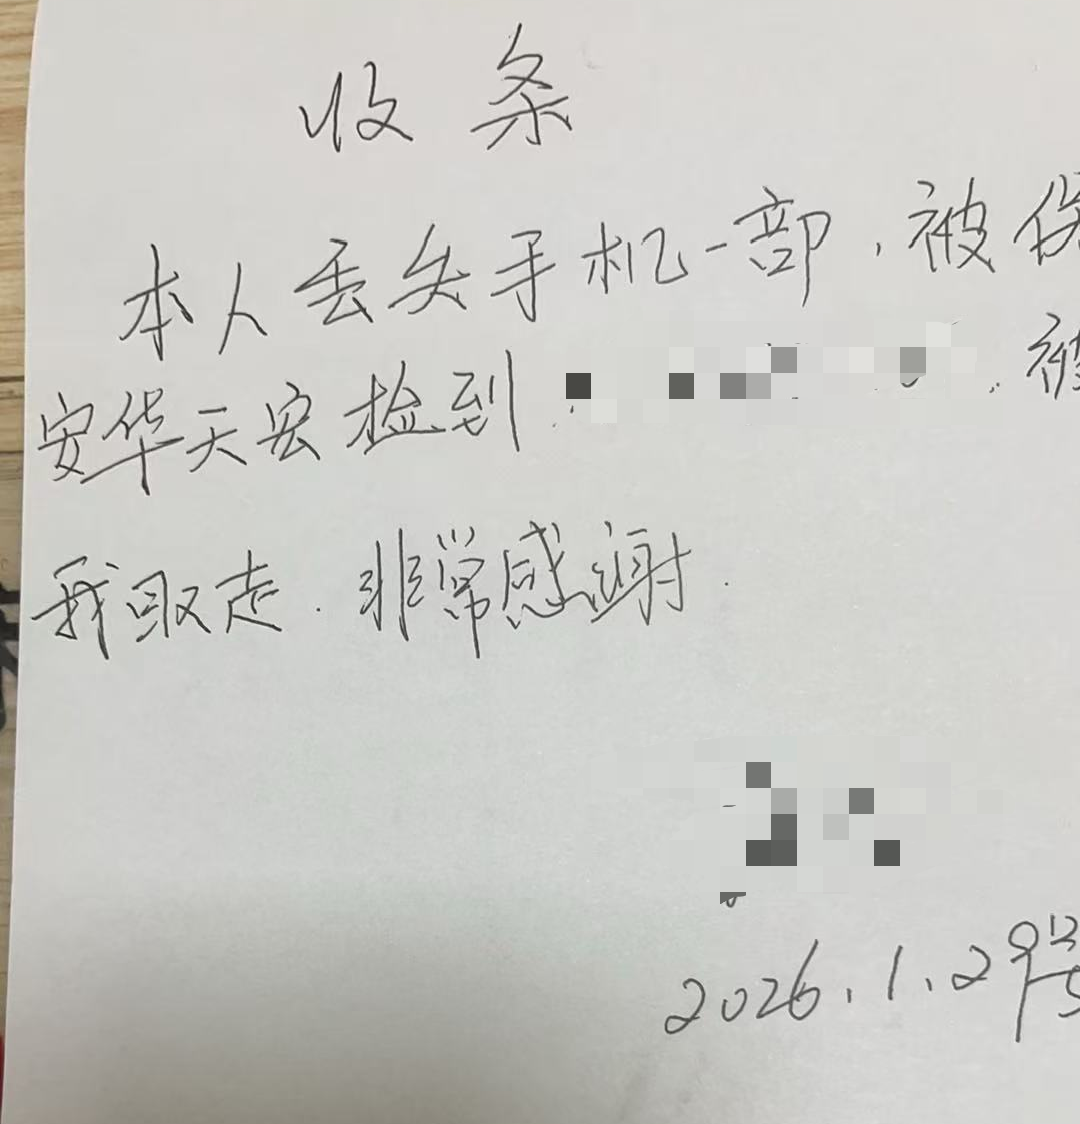 收条
本人丢失手机一部，被保
安华天宏检到. 被
我取走.非常感谢.
2026.1.29